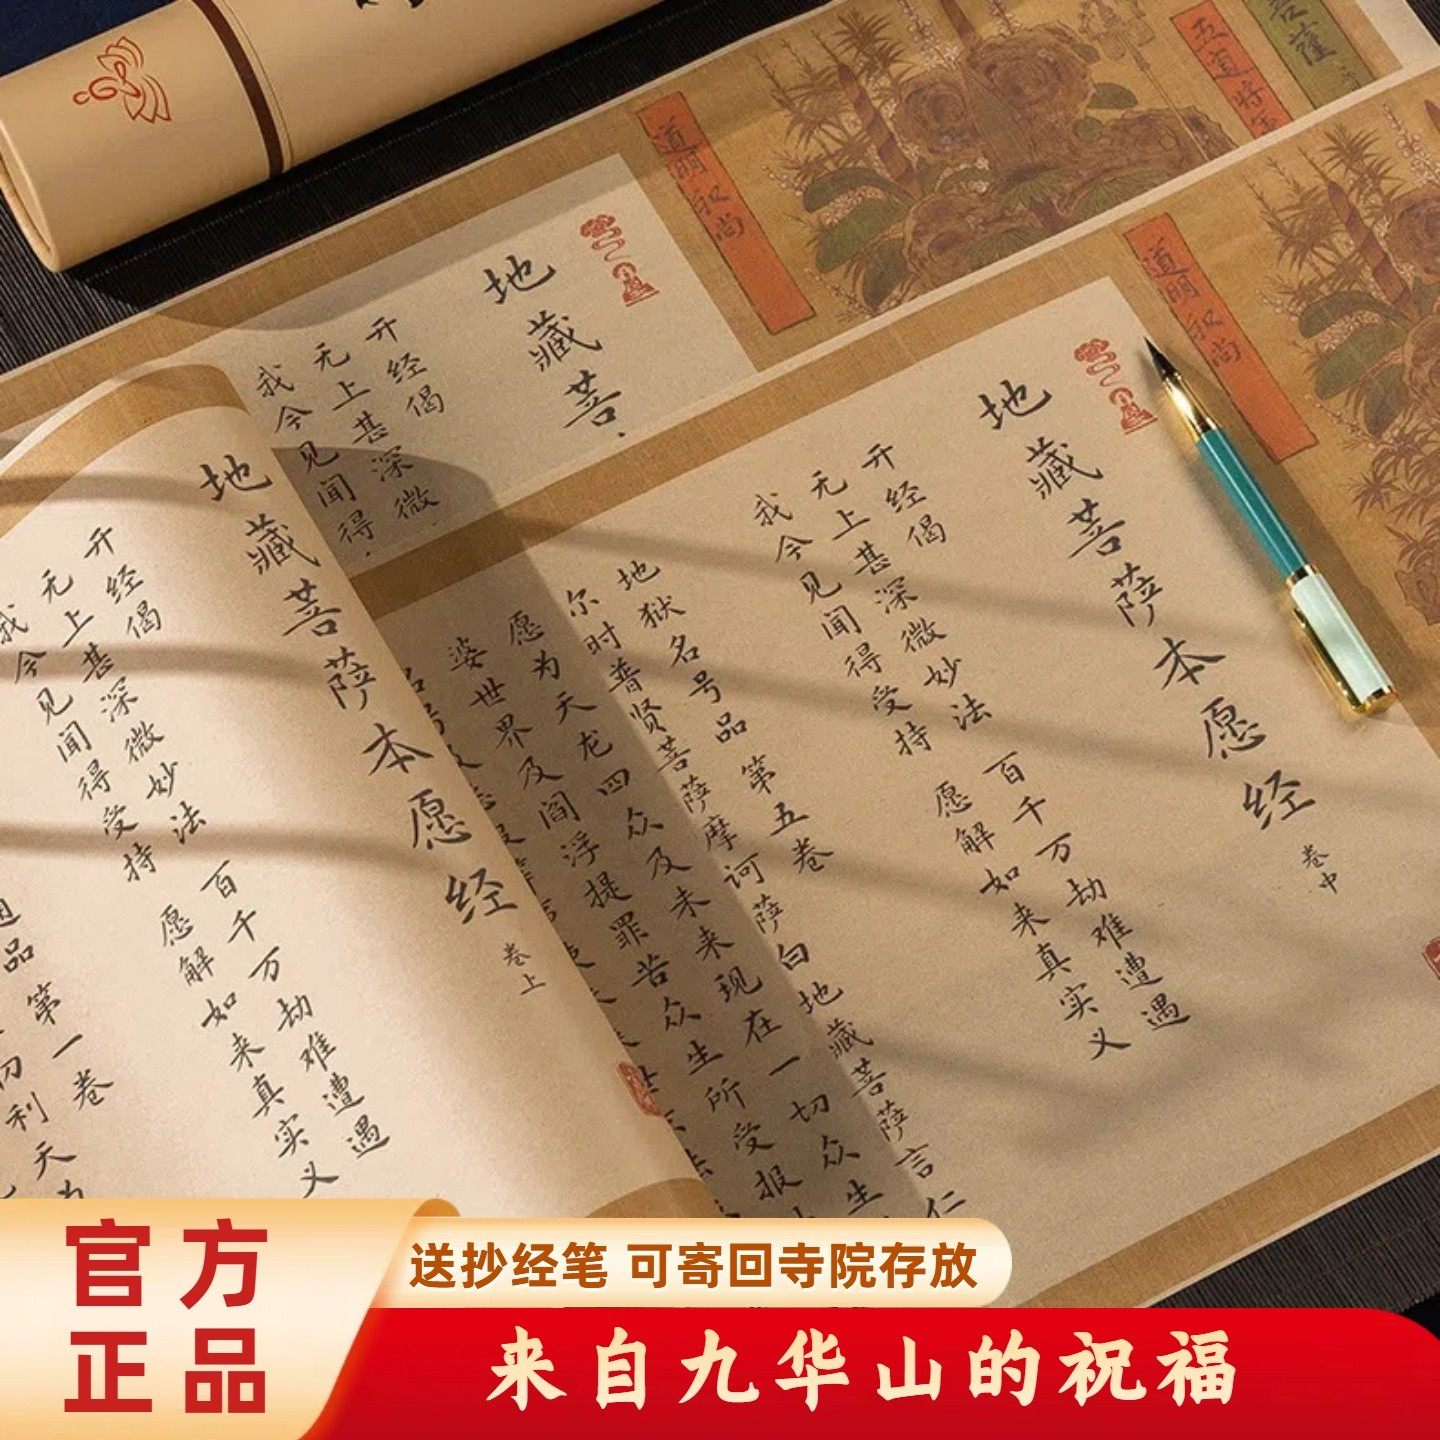 菩薩
五道将军
道明和尚
地藏菩
开经偈
无上甚深微
我今见闻得
道明和尚
地藏菩萨本愿经 卷中
开经偈
无上甚深微妙法 百千万劫难遭遇
我今见闻得受持 愿解如来真实义
地狱名号品 第五卷
尔时普贤菩萨摩诃萨白地藏菩萨言仁
愿为天龙四众及未来现在一切众生
婆世界及阎浮提罪苦众生所受报
地藏菩萨本愿经 卷上
开经偈
无上甚深微妙法 百千万劫难遭遇
我今见闻得受持 愿解如来真实义
通品 第一卷
忉利天为
官方正品
送抄经笔 可寄回寺院存放
来自九华山的祝福